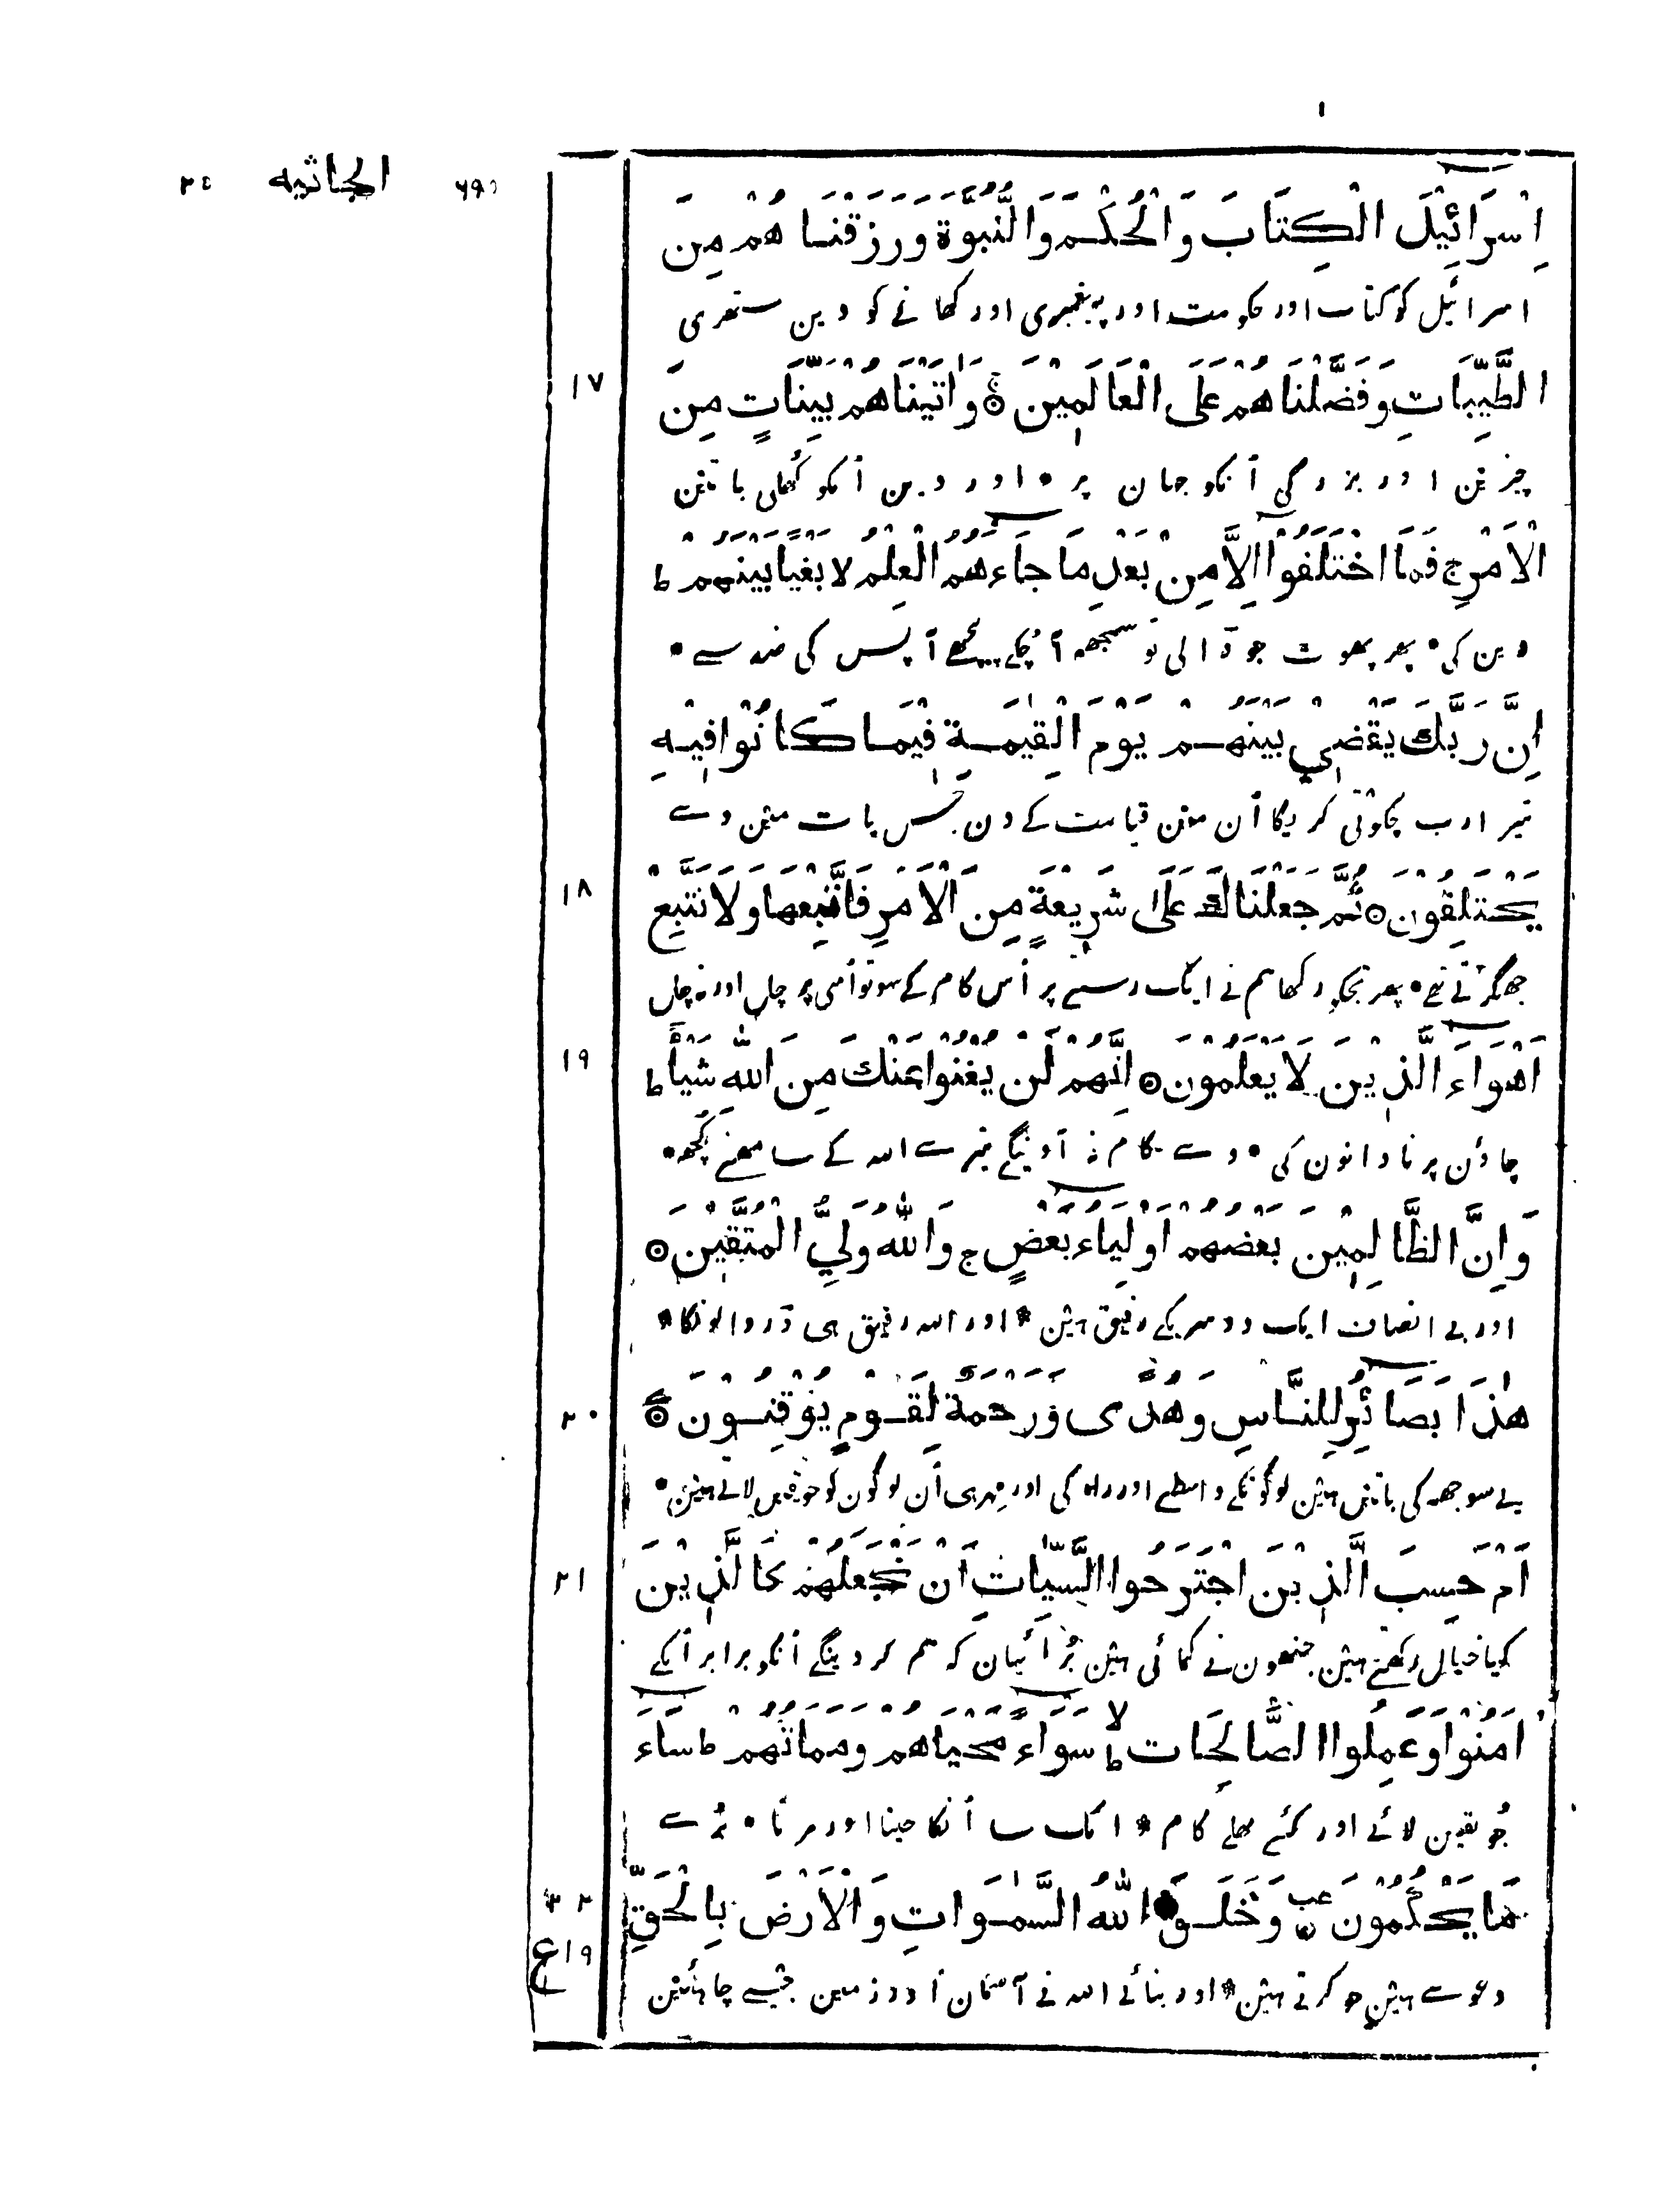 الجاثيه
اِسْرَائِيْلَ الْكِتَابَ وَالْحُكْمَ وَالنُّبُوَّةَ وَرَزَقْنَا هُمْ مِنَ
اسرائیل کو کتاب اور حکومت اور پیغمبری اور کھانے کو دین ستھری
الطَّيِّبَاتِ وَفَضَّلْنَاهُمْ عَلَى الْعَالَمِيْنَ ۝ وَاٰتَيْنَاهُمْ بَيِّنَاتٍ مِنَ
۱۷
چیزین اور بزرگی اُنکو جہان پر * اور دین اُنکو کُھلی باتین
الْاَمْرِ ج فَمَا اخْتَلَفُوْا اِلَّا مِنْ بَعْدِ مَا جَاءَهُمُ الْعِلْمُ لا بَغْيًا بَيْنَهُمْ ط
دین کی * پھر پھوٹ جو ڈالی تو سمجھ آ چُکے پیچھے آپس کی ضد سے *
اِنَّ رَبَّكَ يَقْضِيْ بَيْنَهُمْ يَوْمَ الْقِيٰمَةِ فِيْمَا كَانُوْا فِيْهِ
تیرا رب چکوتی کریگا اُن مین قیامت کے دن جس بات مین وے
يَخْتَلِفُوْنَ ۝ ثُمَّ جَعَلْنَاكَ عَلَى شَرِيْعَةٍ مِنَ الْاَمْرِ فَاتَّبِعْهَا وَلَا تَتَّبِعْ
۱۸
جھگڑتے تھے * پھر تجکو رکھا ہم نے ایک رستے پر اُس کام کے سو تو اُسی پر چل اور نہ چل
اَهْوَاءَ الَّذِيْنَ لَا يَعْلَمُوْنَ ۝ اِنَّهُمْ لَنْ يُغْنُوْا عَنْكَ مِنَ اللّٰهِ شَيْئًا ط
۱۹
چاؤن پر نادانون کی * وے کام نہ آوینگے تیرے اللہ کے سامھنے کُچھ *
وَاِنَّ الظَّالِمِيْنَ بَعْضُهُمْ اَوْلِيَاءُ بَعْضٍ ج وَاللّٰهُ وَلِيُّ الْمُتَّقِيْنَ ۝
اور بے انصاف ایک دوسریکے رفیق ہین * اور اللہ رفیق ہی ڈر والونکا *
هٰذَا بَصَائِرُ لِلنَّاسِ وَهُدًى وَّرَحْمَةٌ لِقَوْمٍ يُوْقِنُوْنَ ۝
۲۰
یے سوجھ کی باتین ہین لوگونکے واسطے اور راہ کی اور مِہر ہی اُن لوگون کو جو یقین لاتے ہین *
اَمْ حَسِبَ الَّذِيْنَ اجْتَرَحُوا السَّيِّاٰتِ اَنْ نَجْعَلَهُمْ كَالَّذِيْنَ
۲۱
کیا خیال رکھتے ہین جنھون نے کمائی ہین بُرائیان کہ ہم کر دینگے اُنکو برابر اُنکے
اٰمَنُوْا وَعَمِلُوا الصَّالِحَاتِ لا ط سَوَاءً مَحْيَاهُمْ وَمَمَاتُهُمْ ط سَاءَ
جُو یقین لائے اور کئے بھلے کام * ایک سا اُنکا جینا اور مرنا * بُرے
مَا يَحْكُمُوْنَ ۝ وَخَلَقَ اللّٰهُ السَّمٰوَاتِ وَالْاَرْضَ بِالْحَقِّ
۱۹ ع
دعوے ہین جو کرتے ہین * اور بنائے اللہ نے آسمان اور زمین جیسے چاہئین